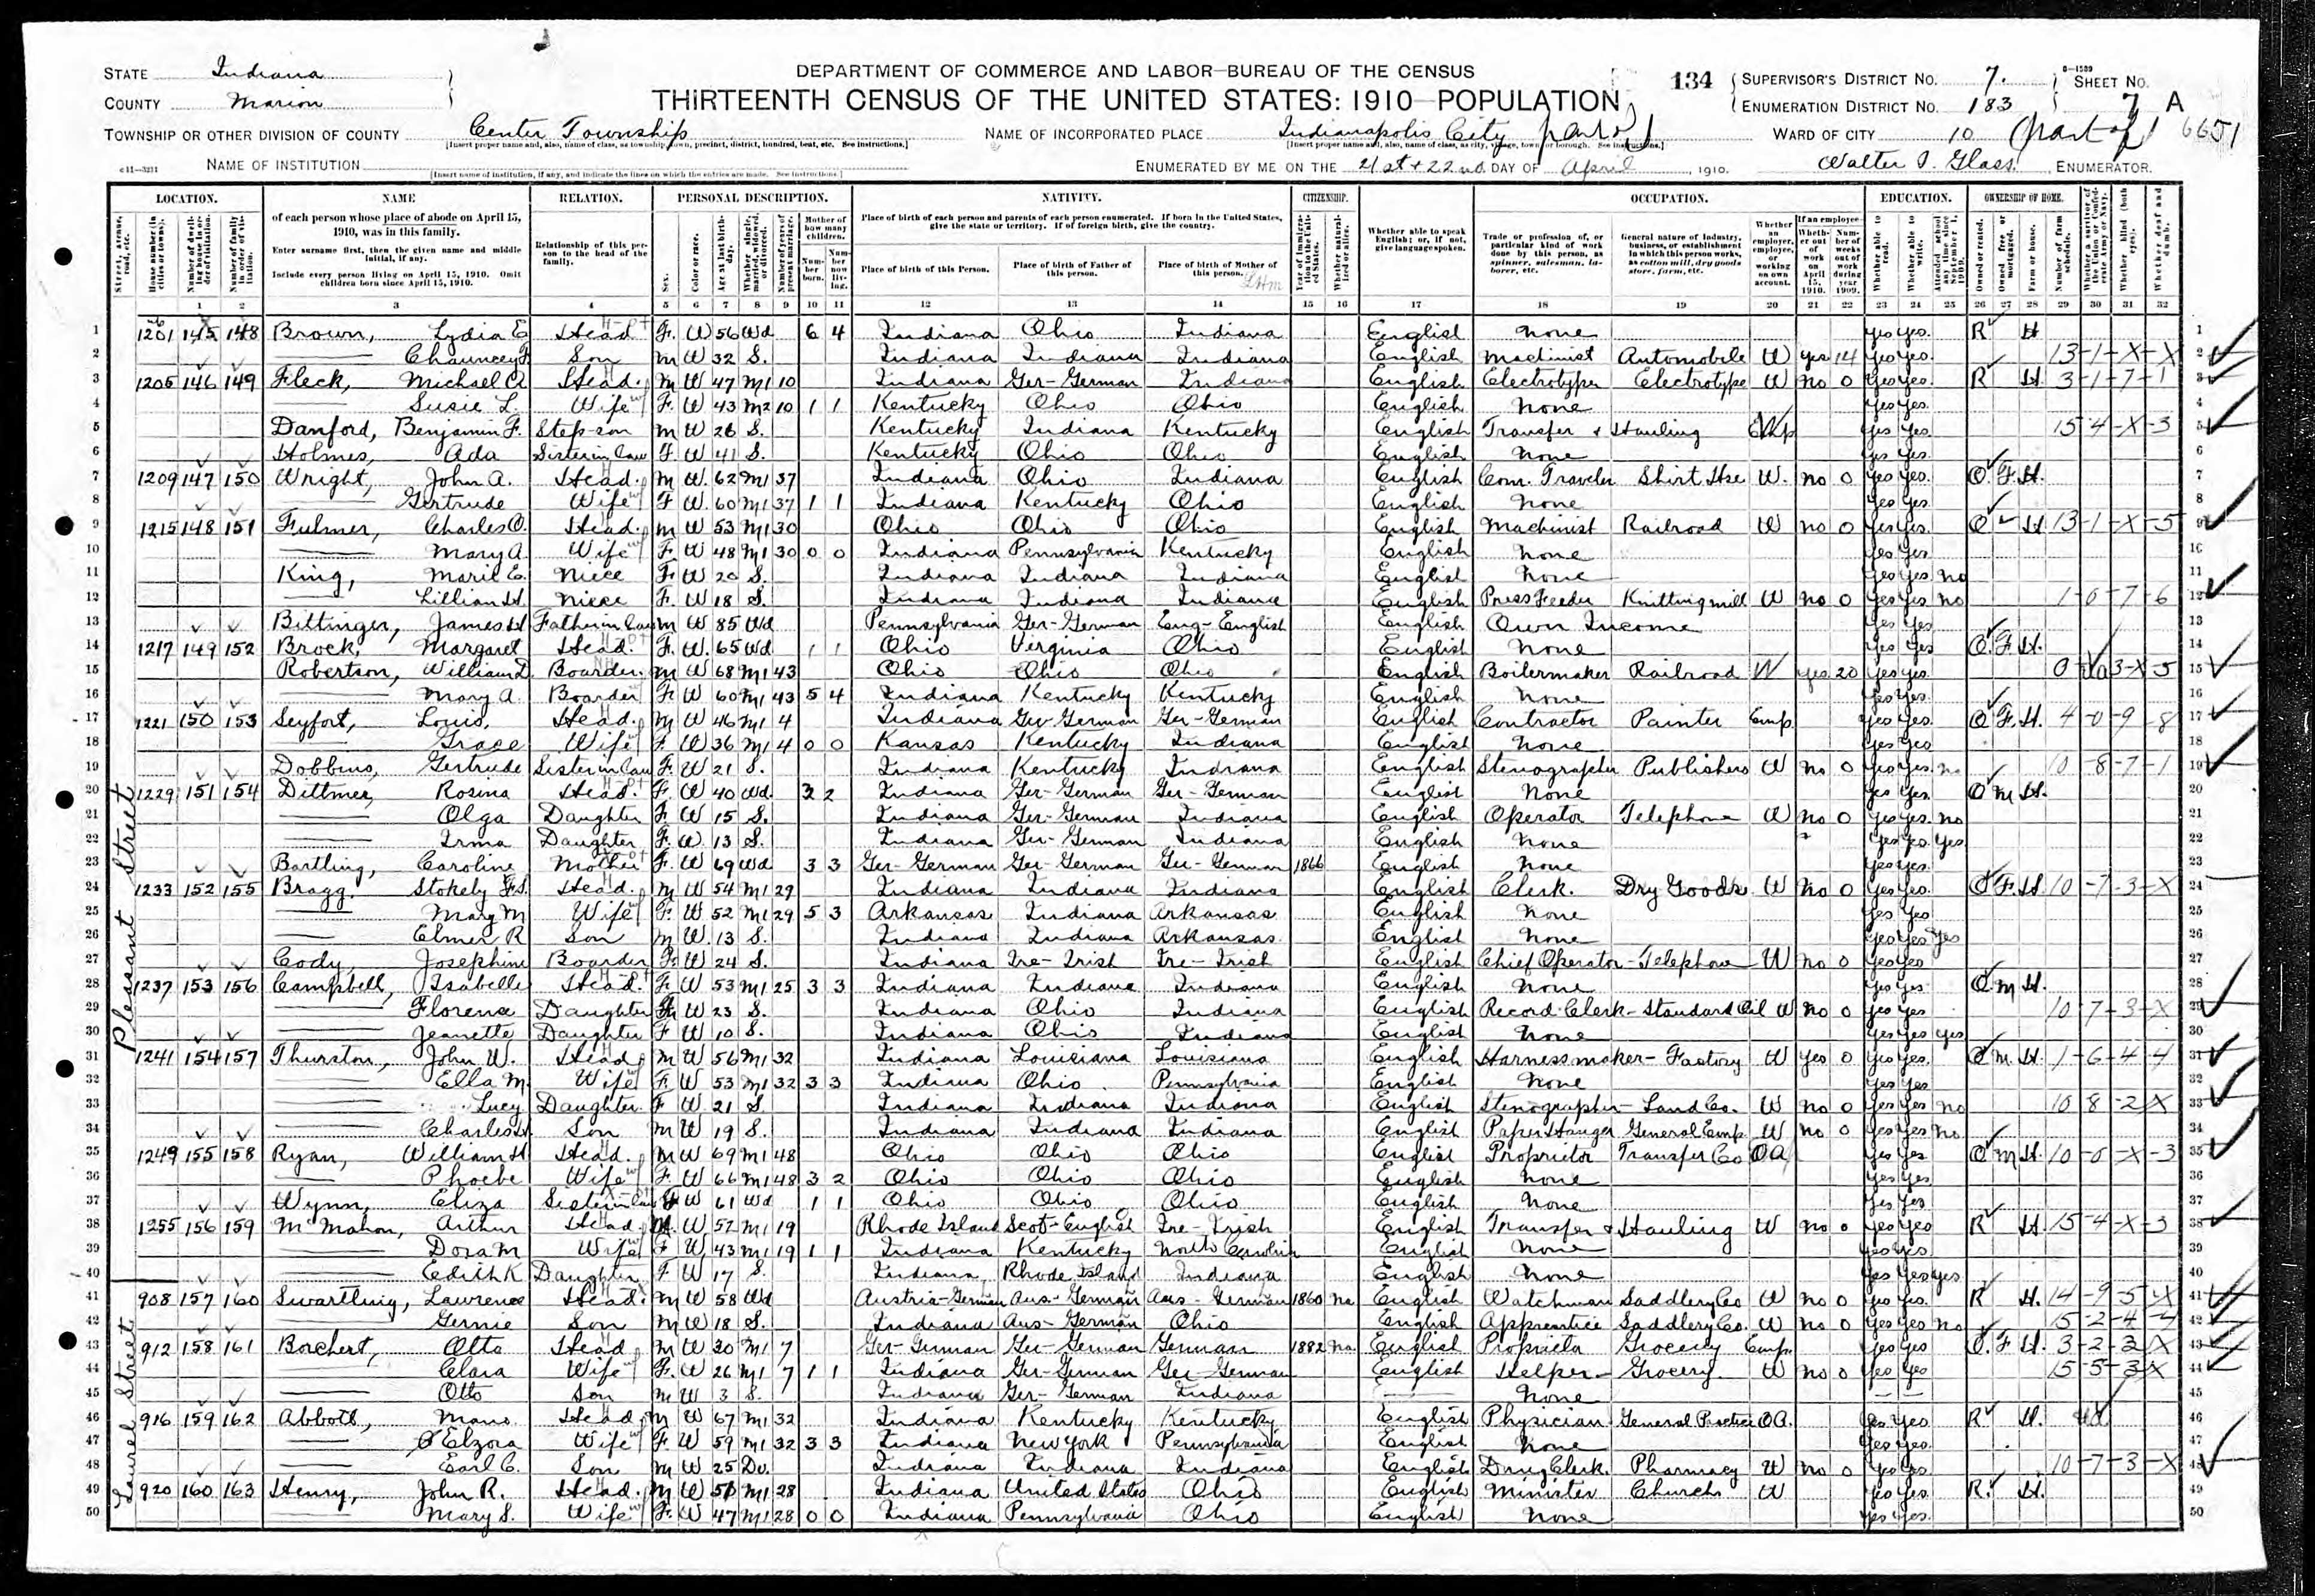 STATE Indiana
COUNTY Marion
DEPARTMENT OF COMMERCE AND LABOR—BUREAU OF THE CENSUS
THIRTEENTH CENSUS OF THE UNITED STATES: 1910—POPULATION
134
SUPERVISOR'S DISTRICT No. 7.
ENUMERATION DISTRICT No. 183
SHEET No. 7 A
TOWNSHIP OR OTHER DIVISION OF COUNTY Center Township
NAME OF INCORPORATED PLACE Indianapolis City (part of)
WARD OF CITY 10 (part of) 6651
NAME OF INSTITUTION
ENUMERATED BY ME ON THE 21st + 22nd DAY OF April, 1910.
Walter I. Glass, ENUMERATOR.
LOCATION. NAME RELATION. PERSONAL DESCRIPTION. NATIVITY. CITIZENSHIP. OCCUPATION. EDUCATION. OWNERSHIP OF HOME.
of each person whose place of abode on April 15, 1910, was in this family.
Enter surname first, then the given name and middle initial, if any.
Include every person living on April 15, 1910. Omit children born since April 15, 1910.
Relationship of this person to the head of the family.
Place of birth of each person and parents of each person enumerated. If born in the United States, give the state or territory. If of foreign birth, give the country.
Place of birth of this Person. Place of birth of Father of this person. Place of birth of Mother of this person.
Whether able to speak English; or, if not, give language spoken.
Pleasant Street
1 1201 145 148 Brown, Lydia E Head F. W 56 Wd 6 4 Indiana Ohio Indiana English None Yes Yes. R H
2 Chauncey F Son M W 32 S. Indiana Indiana Indiana English Machinist Automobile W Yes 14 Yes Yes. 13-1-X-X
3 1205 146 149 Fleck, Michael A Head. M W 47 M1 10 Indiana Ger-German Indiana English Electrotyper Electrotype W No 0 Yes Yes. R H. 3-1-7-1
4 Susie L. Wife F. W 43 M2 10 1 1 Kentucky Ohio Ohio English None Yes Yes.
5 Danford, Benjamin F. Step-son M W 26 S. Kentucky Indiana Kentucky English Transfer + Hauling Emp Yes Yes. 15-4-X-3
6 Holmes, Ada Sister in Law F. W 41 S. Kentucky Ohio Ohio English None Yes Yes.
7 1209 147 150 Wright, John A. Head. M W. 62 M1 37 Indiana Ohio Indiana English Com. Traveler Shirt Hse W. No 0 Yes Yes. O. F. H.
8 Gertrude Wife F W. 60 M1 37 1 1 Indiana Kentucky Ohio English None Yes Yes.
9 1215 148 151 Fulmer, Charles O. Head. M W 53 M1 30 Ohio Ohio Ohio English Machinist Railroad W No 0 Yes Yes. O H 13-1-X-5
10 Mary A. Wife F. W 48 M1 30 0 0 Indiana Pennsylvania Kentucky English None Yes Yes
11 King, Marie E. Niece F. W 20 S. Indiana Indiana Indiana English None Yes Yes No
12 Lillian H. Niece F. W 18 S. Indiana Indiana Indiana English Press Feeder Knitting mill W No 0 Yes Yes No 1-0-7-6
13 Bittinger, James H Father in Law M W 85 Wd Pennsylvania Ger-German Eng-English English Own Income Yes Yes
14 1217 149 152 Brock, Margaret Head. F. W. 65 Wd 1 1 Ohio Virginia Ohio English None Yes Yes O. F. H.
15 Robertson, William D. Boarder. M W 68 M1 43 Ohio Ohio Ohio English Boilermaker Railroad W Yes 20 Yes Yes.
16 Mary A. Boarder F. W 60 M1 43 5 4 Indiana Kentucky Kentucky English None Yes Yes.
17 1221 150 153 Seyfort, Louis, Head. M W 46 M1 4 Indiana Ger-German Ger-German English Contractor Painter Emp. Yes Yes. O F. H. 4-0-9-8
18 Grace Wife F. W 36 M1 4 0 0 Kansas Kentucky Indiana English None Yes Yes
19 Dobbins, Gertrude Sister in Law F. W 21 S. Indiana Kentucky Indiana English Stenographer Publishers W No 0 Yes Yes. No 10-8-7-1
20 1229 151 154 Dittmer, Rosina Head. F. W 40 Wd. 2 Indiana Ger-German Ger-German English None Yes Yes. O M H.
21 Olga Daughter F. W 15 S. Indiana Ger-German Indiana English Operator Telephone W No 0 Yes Yes. No
22 Irma Daughter F. W. 13 S. Indiana Ger-German Indiana English None Yes Yes. Yes
23 Bartling, Caroline Mother F. W 69 Wd 3 3 Ger-German Ger-German Ger-German 1866 English None Yes Yes.
24 1233 152 155 Bragg. Stokely F.S. Head. M W 54 M1 29 Indiana Indiana Indiana English Clerk. Dry Goods W No 0 Yes Yes. O F. H. 10-7-3-X
25 Mary M Wife F. W 52 M1 29 5 3 Arkansas Indiana Arkansas English None Yes Yes
26 Elmer R Son M W. 13 S. Indiana Indiana Arkansas. English None Yes Yes Yes
27 Cody, Josephine Boarder F. W 24 S. Indiana Ire-Irish Ire-Irish English Chief Operator-Telephone W No 0 Yes Yes
28 1237 153 156 Campbell, Isabelle Head. F. W 53 M1 25 3 3 Indiana Indiana Indiana English None Yes Yes. O. M H.
29 Florence Daughter F W 23 S. Indiana Ohio Indiana English Record Clerk-Standard Oil W No 0 Yes Yes 10-7-3-X
30 Jeanette Daughter F W 10 S. Indiana Ohio Indiana English None Yes Yes Yes
31 1241 154 157 Thurston, John W. Head M W 56 M1 32 Indiana Louisiana Louisiana English Harnessmaker-Factory W Yes 0 Yes Yes. O M. H. 1-6-4-4
32 Ella M. Wife F. W 53 M1 32 3 3 Indiana Ohio Pennsylvania English None Yes Yes
33 Lucy Daughter. F W. 21 S. Indiana Indiana Indiana English Stenographer-Land Co. W No 0 Yes Yes No 10 8-2 X
34 Charles H. Son M W 19 S. Indiana Indiana Indiana English Paper Hanger General Emp. W No 0 Yes Yes No
35 1249 155 158 Ryan, William H Head. M W 69 M1 48 Ohio Ohio Ohio English Proprietor Transfer Co OA Yes Yes. O M H. 10-0-X-3
36 Phoebe Wife F. W 66 M1 48 3 2 Ohio Ohio Ohio English None Yes Yes
37 Wynn, Eliza Sister in Law F W 61 Wd 1 1 Ohio Ohio Ohio English None Yes Yes
38 1255 156 159 McMahon, Arthur Head. M. W 52 M1 19 Rhode Island Scot-English Ire-Irish English Transfer + Hauling W No 0 Yes Yes R H 15-4-X-3
39 Dora M Wife F W 43 M1 19 1 1 Indiana Kentucky North Carolina English None Yes Yes.
40 Edith K Daughter F W 17 S. Indiana Rhode Island Indiana English None Yes Yes Yes
Laurel Street
41 908 157 160 Swartling, Lawrence Head. M W 58 Wd Austria-German Aus-German Aus-German 1860 Na English Watchman Saddlery Co W No 0 Yes Yes. R H. 14-9-5-X
42 Son M W 18 S. Indiana Aus-German Ohio English Apprentice Saddlery Co. W No 0 Yes Yes No 15-2-4-4
43 912 158 161 Borchert, Otto Head M W 30 M1 7 Ger-German Ger-German German 1882 Na English Proprietor Grocery Emp. Yes Yes O. F H. 3-2-2-X
44 Clara Wife F. W 26 M1 7 1 1 Indiana Ger-German Ger-German English Helper- Grocery W No 0 Yes Yes 15-5-3-X
45 Otto Son M W 3 S. Indiana Ger-German Indiana None
46 916 159 162 Abbott, Head M W 67 M1 32 Indiana Kentucky Kentucky English Physician General Practice OA. Yes Yes. R H.
47 Elzora Wife F W 59 M1 32 3 3 Indiana New York Pennsylvania English None Yes Yes.
48 Earl C. Son M W 25 Dv. Indiana Indiana Indiana English Drug Clerk. Pharmacy W No 0 Yes Yes. 10-7-3-X
49 920 160 163 Henry, John R. Head. M W 51 M1 28 Indiana United States Ohio English Minister Church W Yes Yes. R. H.
50 Mary S. Wife F. W 47 M1 28 0 0 Indiana Pennsylvania Ohio English None Yes Yes.